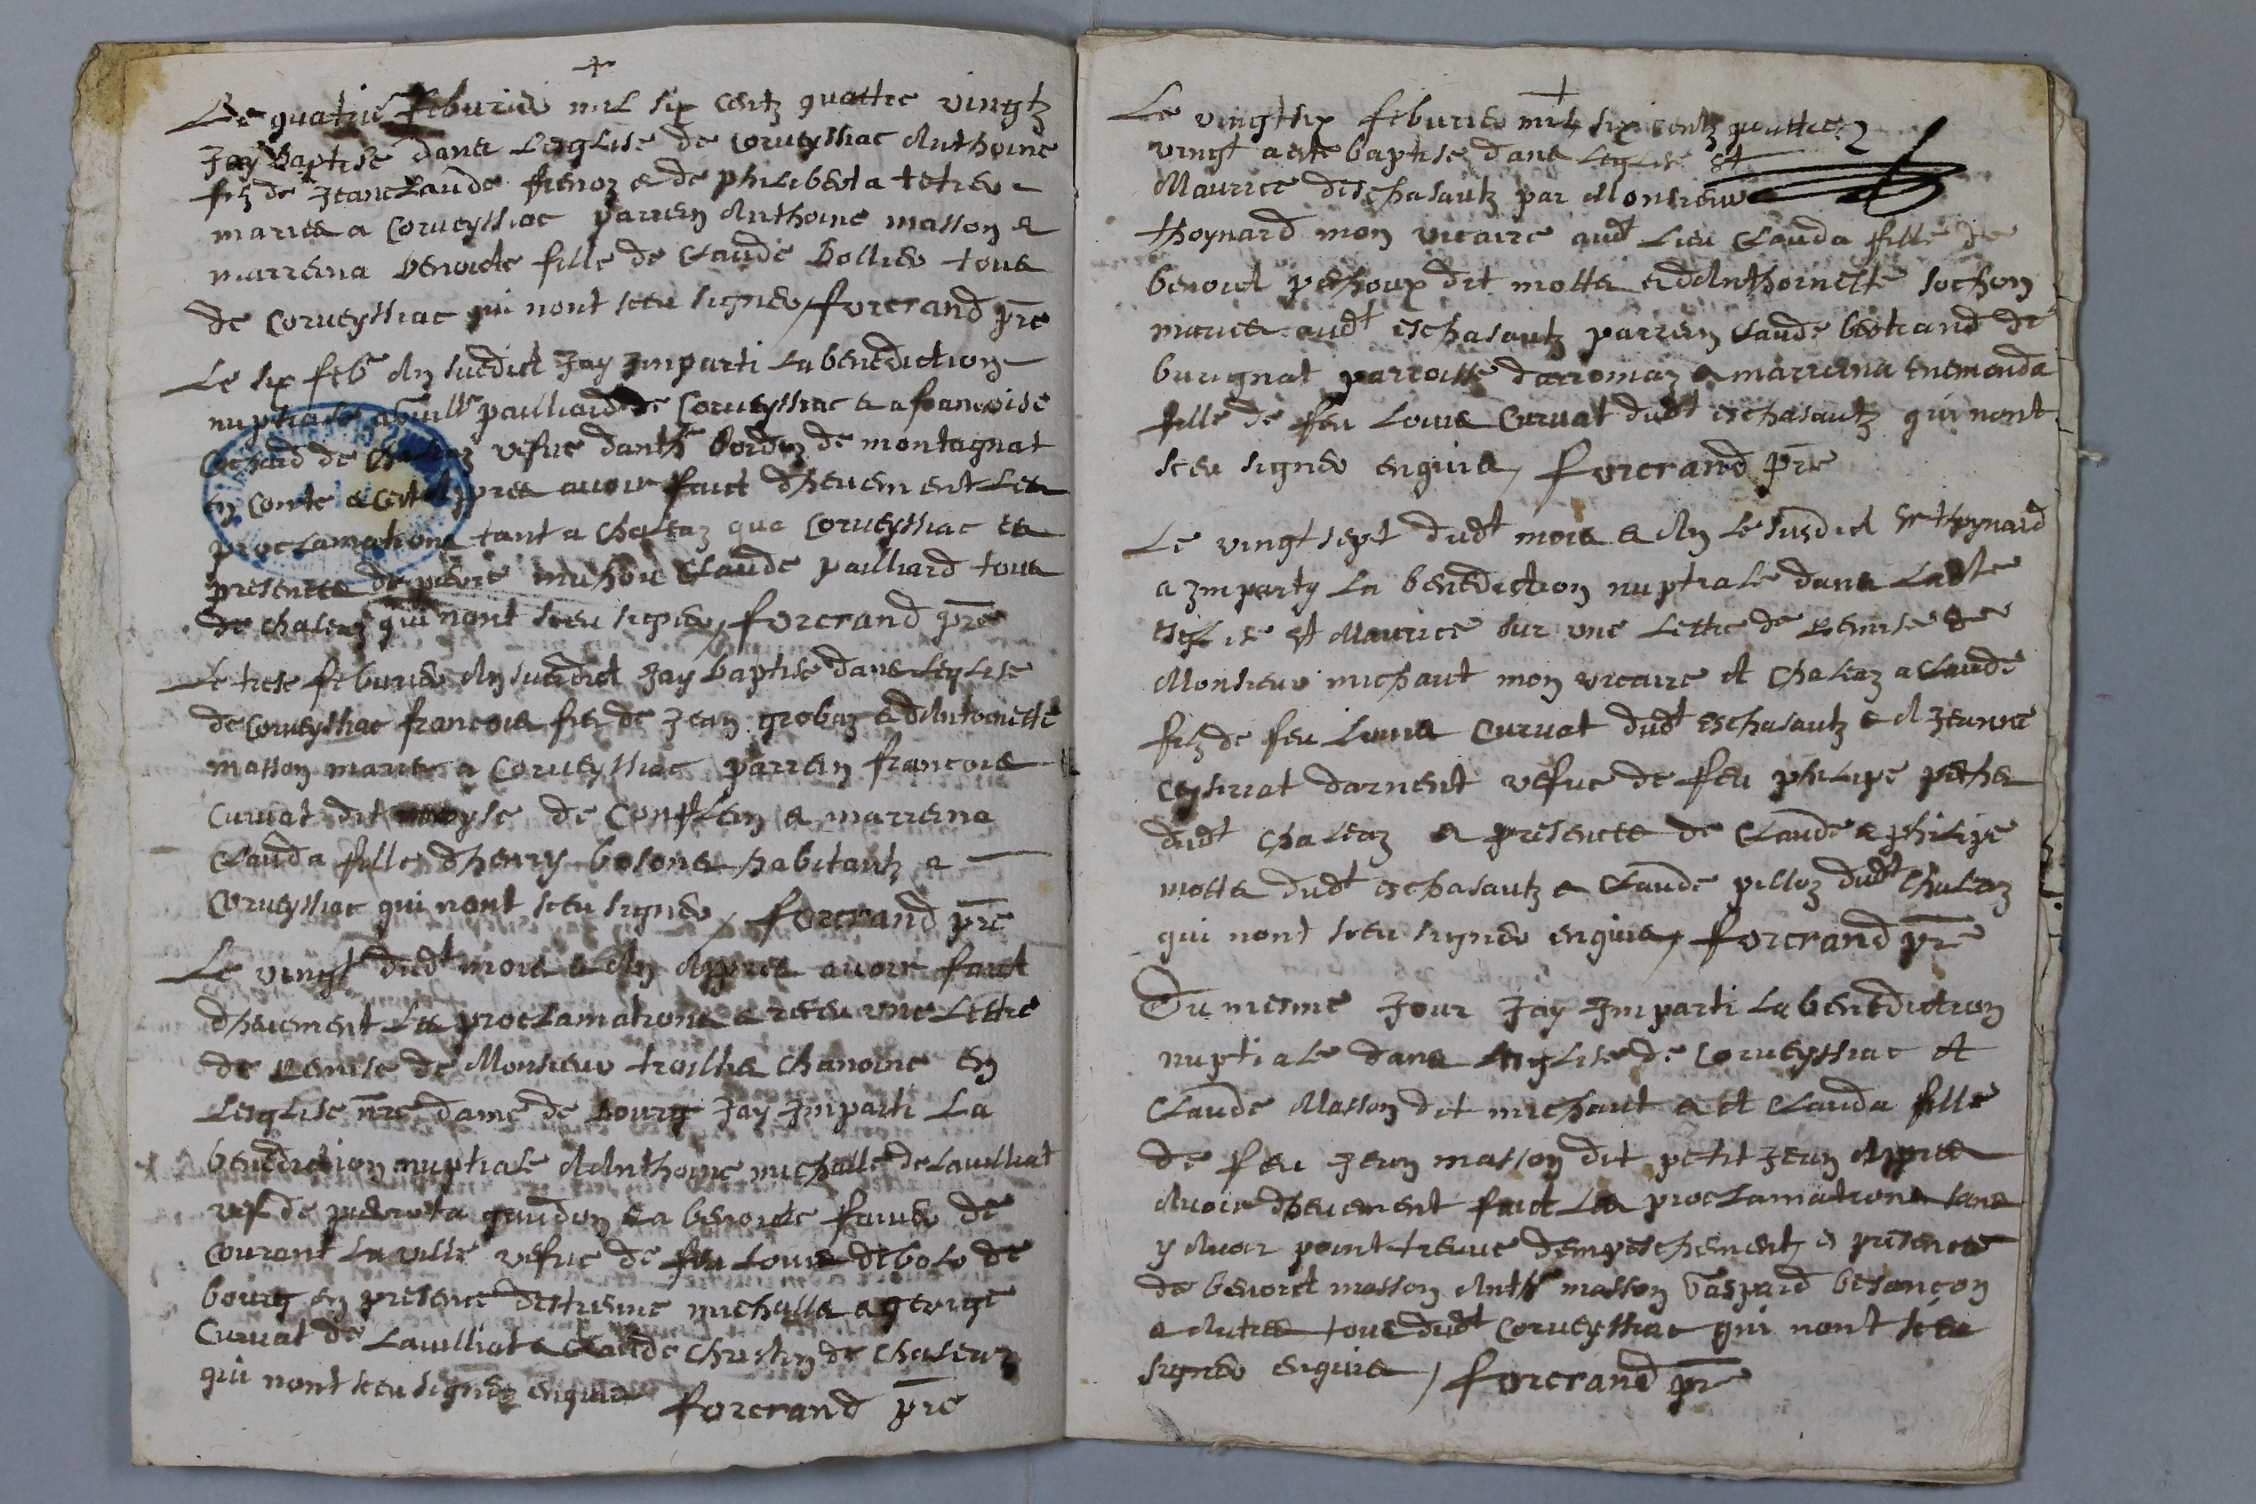 Le quatrie feburier mil six centz quattre vingtz
Jay Baptisé dans Lesglise de Corveyssiac Anthoine
filz de Jeanclaude frenoz & de philiberta tetreu
maries a Corveyssiac parrein Anthoine masson &
marreina benoiste fille de Claude bollier tous
de Corveyssiac qui nont sceu signer, forcrand pre
Le six feb An susdict Jay Imparti La benediction
nuptiale a guille pailliard de Corveyssiac & a francoise
de chaleaz vefve danth bordez de montagnat
en Conte appres avoir faict dheuement Les
proclamations tant a chaleaz que Corveyssiac es
presences de pierre muhou Claude pailliard tous
de chaleaz qui nont sceu signer, forcrand pre
Le trese feburier An susdict Jay baptise dans Leglise
de Corveyssiac francois filz de Jean grobaz & dAntoinette
masson maries a Corveyssiac parrein francois
Curvat dit moyse de Conflein & marreina
Clauda fille dhenry bosons habitantz a
Corveyssiac qui nont sceu signer, forcrand pre
Le vingt dudt mois & An Appres avoir faict
dheuement Les proclamations & receu une Lettre
de Remise de Monsieur troillia chanoine en
Lesglise nre dame de bourg Jay Imparti La
benediction nuptiale A Anthoine michalle de Lavilliat
vef de pierrota gaudon & a benoiste faivre de
Courant La ville vefve de feu Louis debolo de
bourg en presence destienne michalle & george
Curvat de Lavilliat & Claude Christin de chaleaz
qui nont sceu signer enquis forcrand pre
Le vingtsix feburier mil six centz quattre
vingt a este baptise dans Leglise St
Maurice deschasautz par Monsieur
thoynard mon vicaire audt Lieu Clauda fille de
benoict pethoux dit motta & dAnthoinette sochon
maries audt eschasautz parrein Claude bertrand de
burignat parroisse darromaz & marreina Enemonda
fille de feu Louis Curvat dudt eschasautz qui nont
sceu signer enquis, forcrand pre
Le vingt sept dudt mois & An Le susdict sr thoynard
a Imparty La benediction nuptiale dans Ladte
esglise St Maurice sur une Lettre de Remise de
Monsieur michaut mon vicaire A chaleaz a Claude
filz de feu Louis Curvat dudt eschasautz & A Jeanne
ceysiriat darnent vefve de feu philipe petha
dudt chaleaz & presences de Claude & philipe
motta dudt eschasautz & Claude pilloz dudt chaleaz
qui nont sceu signer enquis, forcrand pre
Du mesme Jour Jay Imparti La benediction
nuptiale dans lesglise de Corveyssiac A
Claude Masson dit michaut & A Clauda fille
de feu Jean masson dit petit Jean Appres
Avoir dheuement faict Les proclamations sans
y Avoir point treuve dempeschement, es presences
de benoict masson Anth masson Gaspard besançon
& Autres tous dudt Corveyssiac qui nont sceu
signer enquis, forcrand pre